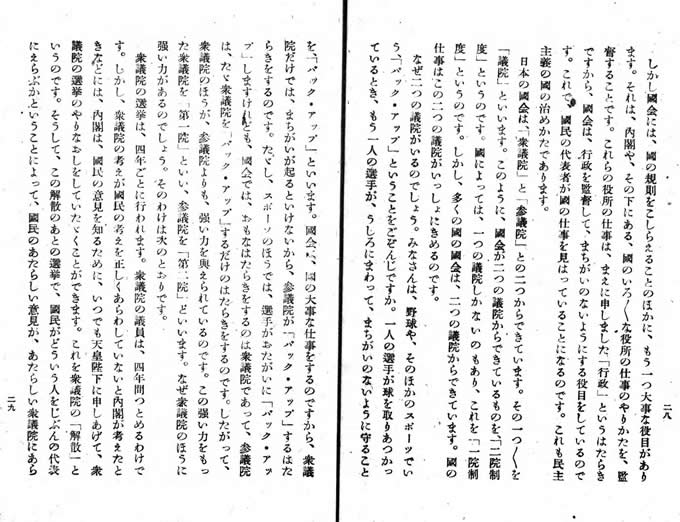 しかし國会には、國の規則をこしらえることのほかに、もう一つ大事な役目があり
ます。それは、内閣や、その下にある、國のいろ〳〵な役所の仕事のやりかたを、監
督することです。これらの役所の仕事は、まえに申しました「行政」というはたらき
ですから、國会は、行政を監督して、まちがいのないようにする役目をしているので
す。これで、國民の代表者が國の仕事を見はっていることになるのです。これも民主
主義の國の治めかたであります。
日本の國会は「衆議院」と「参議院」との二つからできています。その一つ〳〵を
「議院」といいます。このように、國会が二つの議院からできているものを、「二院制
度」というのです。國によっては、一つの議院しかないのもあり、これを「一院制
度」というのです。しかし、多くの國の國会は、二つの議院からできています。國の
仕事はこの二つの議院がいっしょにきめるのです。
なぜ二つの議院がいるのでしょう。みなさんは、野球や、そのほかのスポーツでい
う「バック・アップ」ということをごぞんじですか。一人の選手が球を取りあつかっ
ているとき、もう一人の選手が、うしろにまわって、まちがいのないように守ること
二八
を、「バック・アップ」といいます。國会は、國の大事な仕事をするのですから、衆議
院だけでは、まちがいが起るといけないから、参議院が「バック・アップ」するはた
らきをするのです。たゞし、スポーツのほうでは、選手がおたがいに「バック・アッ
プ」しますけれども、國会では、おもなはたらきをするのは衆議院であって、参議院
は、たゞ衆議院を「バック・アップ」するだけのはたらきをするのです。したがって、
衆議院のほうが、参議院よりも、強い力を與えられているのです。この強い力をもっ
た衆議院を「第一院」といい、参議院を「第二院」といいます。なぜ衆議院のほうに
強い力があるのでしょう。そのわけは次のとおりです。
衆議院の選挙は、四年ごとに行われます。衆議院の議員は、四年間つとめるわけで
す。しかし、衆議院の考えが國民の考えを正しくあらわしていないと内閣が考えたと
きなどには、内閣は、國民の意見を知るために、いつでも天皇陛下に申しあげて、衆
議院の選挙のやりなおしをしていたゞくことができます。これを衆議院の「解散」と
いうのです。そうして、この解散のあとの選挙で、國民がどういう人をじぶんの代表
にえらぶかということによって、國民のあたらしい意見が、あたらしい衆議院にあら
二九